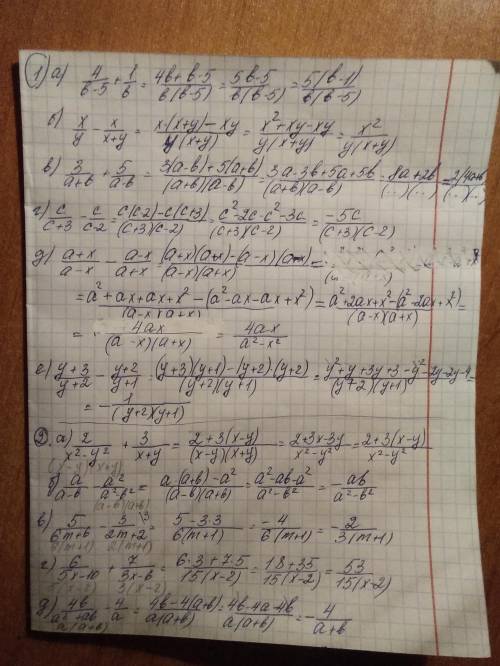 1) а) 4/(в-5) + 1/в = (4в+в-5)/(в(в-5)) = (5в-5)/(в(в-5)) = 5(в-1)/(в(в-5))
б) x/y - x/(x+y) = (x(x+y)-xy)/(y(x+y)) = (x²+xy-xy)/(y(x+y)) = x²/(y(x+y))
в) 3/(a+в) + 5/(a-в) = (3(a-в)+5(a+в))/((a+в)(a-в)) = (3a-3в+5a+5в)/((a+в)(a-в)) = (8a+2в)/((...)(...)) = 2(4a+в)/((...)(...))
г) c/(c+3) - c/(c-2) = (c(c-2)-c(c+3))/((c+3)(c-2)) = (c²-2c-c²-3c)/((c+3)(c-2)) = -5c/((c+3)(c-2))
д) (a+x)/(a-x) - (a-x)/(a+x) = ((a+x)(a+x)-(a-x)(a-x))/((a-x)(a+x)) =
= (a²+ax+ax+x²-(a²-ax-ax+x²))/((a-x)(a+x)) = (a²+2ax+x²-(a²-2ax+x²))/((a-x)(a+x)) =
= 4ax/((a-x)(a+x)) = 4ax/(a²-x²)
е) (y+3)/(y+2) - (y+2)/(y+1) = ((y+3)(y+1)-(y+2)(y+2))/((y+2)(y+1)) = (y²+y+3y+3-y²-2y-2y-4)/((y+2)(y+1)) =
= -1/((y+2)(y+1))
2. а) 2/(x²-y²) + 3/(x+y) = (2+3(x-y))/((x-y)(x+y)) = (2+3x-3y)/(x²-y²) = (2+3(x-y))/(x²-y²)
(x-y)(x+y)
б) a/(a-в) - a²/(a²-в²) = (a(a+в)-a²)/((a-в)(a+в)) = (a²-aв-a²)/(a²-в²) = aв/(a²-в²)
(a-в)(a+в)
в) 5/(6m+6) - 3/(2m+2) \3 = (5-3·3)/(6(m+1)) = -4/(6(m+1)) = -2/(3(m+1))
6(m+1) 2(m+1)
г) 6/(5x-10) + 7/(3x-6) = (6·3+7·5)/(15(x-2)) = (18+35)/(15(x-2)) = 53/(15(x-2))
3(x-2)
д) 4в/(a²+aв) - 4/a = (4в-4(a+в))/(a(a+в)) = (4в-4a-4в)/(a(a+в)) = -4/(a+в)
a(a+в)